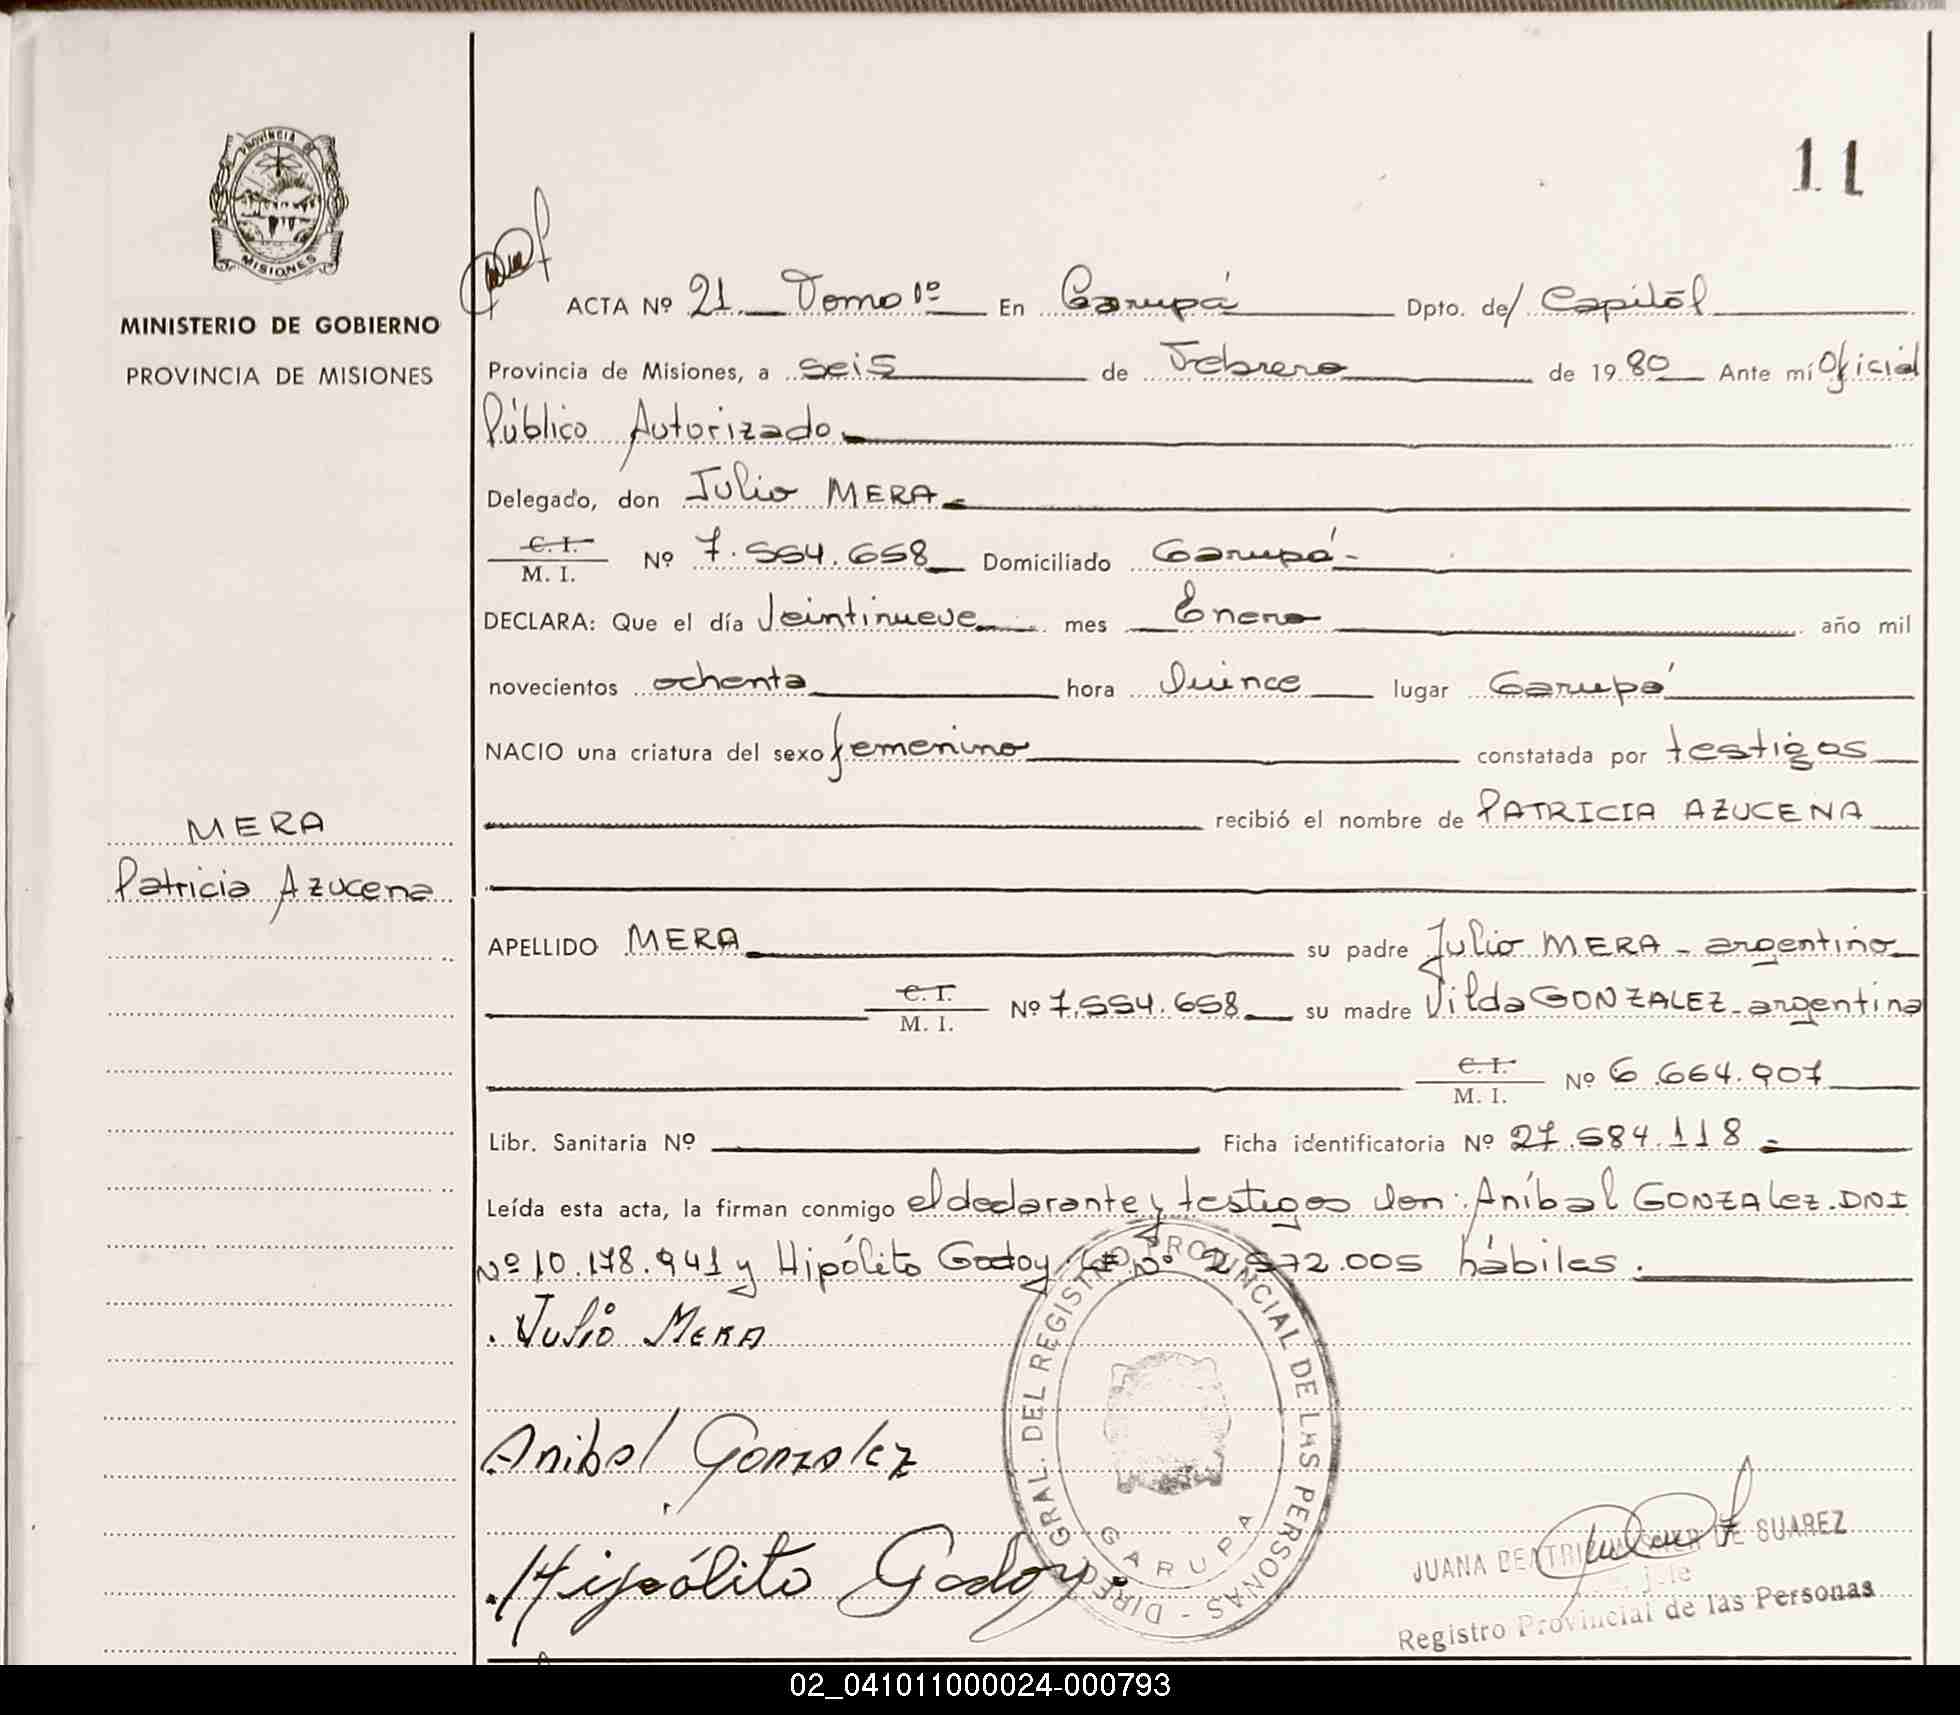 11
PROVINCIA DE
MISIONES
MINISTERIO DE GOBIERNO
PROVINCIA DE MISIONES
ACTA Nº 21 Tomo 1º En Garupá Dpto. de Capital
Provincia de Misiones, a seis de Febrero de 1980 Ante mí Oficial
Público Autorizado
Delegado, don Julio MERA
C. I.
M. I. Nº 7.554.658 Domiciliado Garupá
DECLARA: Que el día Veintinueve mes Enero año mil
novecientos ochenta hora Quince lugar Garupá
NACIO una criatura del sexo femenino constatada por testigos
MERA recibió el nombre de PATRICIA AZUCENA
Patricia Azucena
APELLIDO MERA su padre Julio MERA - argentino
C. I.
M. I. Nº 7.554.658 su madre Vilda GONZALEZ - argentina
C. I.
M. I. Nº 6.664.907
Libr. Sanitaria Nº Ficha identificatoria Nº 27.584.118
Leída esta acta, la firman conmigo el declarante y testigos don: Aníbal GONZALEZ. DNI
Nº 10.178.941 y Hipólito Godoy Nº 2.572.005 hábiles.
Julio MERA
Anibal Gonzalez
Hipólito Godoy.
DIREC. GRAL. DEL REGISTRO PROVINCIAL DE LAS PERSONAS -
GARUPA
JUANA BEATRIZ DE SUAREZ
Registro Provincial de las Personas
02_041011000024-000793